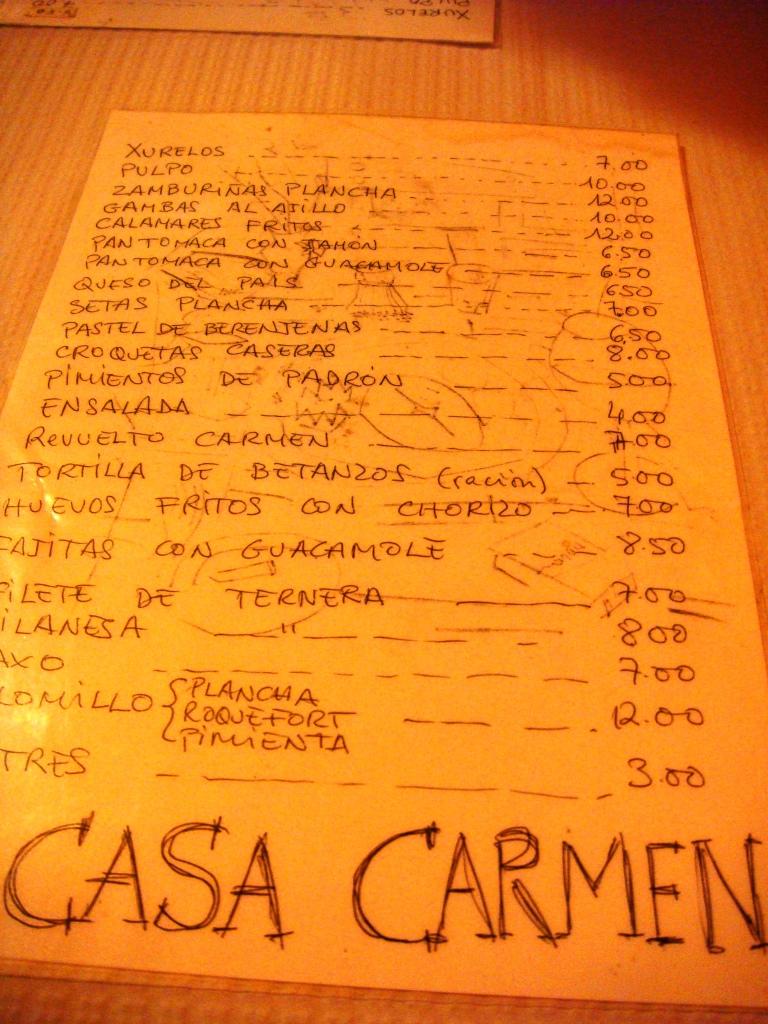 XURELOS
XURELOS --- 7.00
PULPO --- 10.00
ZAMBURIÑAS PLANCHA --- 12.00
GAMBAS AL AJILLO --- 10.00
CALAMARES FRITOS --- 12.00
PAN TOMACA CON JAMÓN --- 6.50
PAN TOMACA CON GUACAMOLE --- 6.50
QUESO DEL PAIS --- 6.50
SETAS PLANCHA --- 7.00
PASTEL DE BERENJENAS --- 6.50
CROQUETAS CASERAS --- 8.00
PIMIENTOS DE PADRÓN --- 5.00
ENSALADA --- 4.00
REVUELTO CARMEN --- 7.00
TORTILLA DE BETANZOS (ración) --- 5.00
HUEVOS FRITOS CON CHORIZO --- 7.00
FAJITAS CON GUACAMOLE --- 8.50
FILETE DE TERNERA --- 7.00
ILANESA --- " --- 8.00
AXO --- 7.00
LOMILLO { PLANCHA
ROQUEFORT --- 12.00
PIMIENTA
TRES --- 3.00
CASA CARMEN